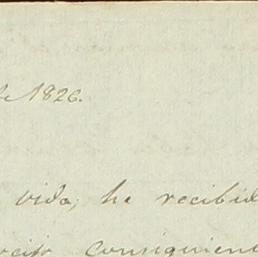 de 1826.
vida, he recibid
consiguient